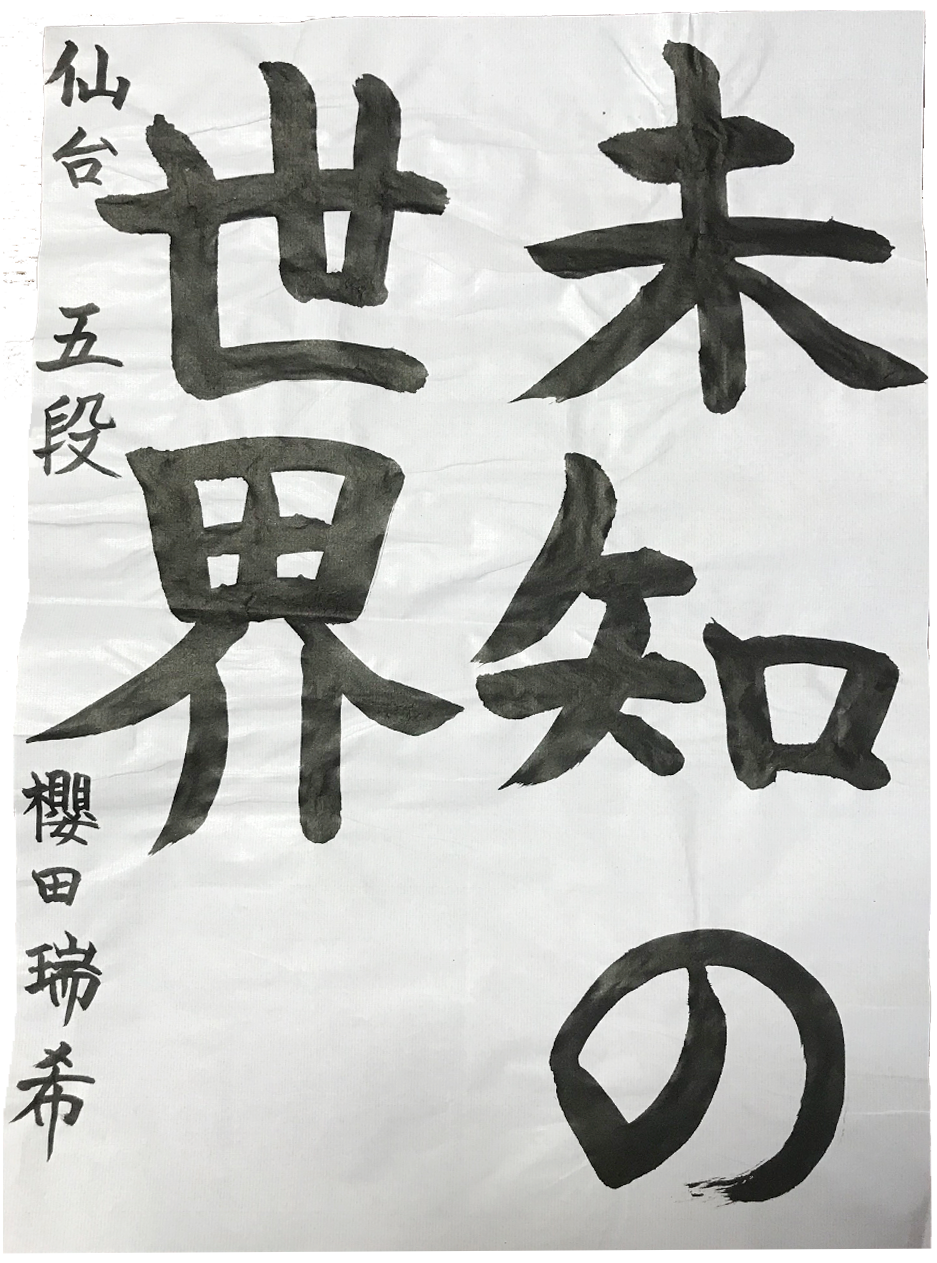 未知の
世界
仙台 五段 櫻田瑞希